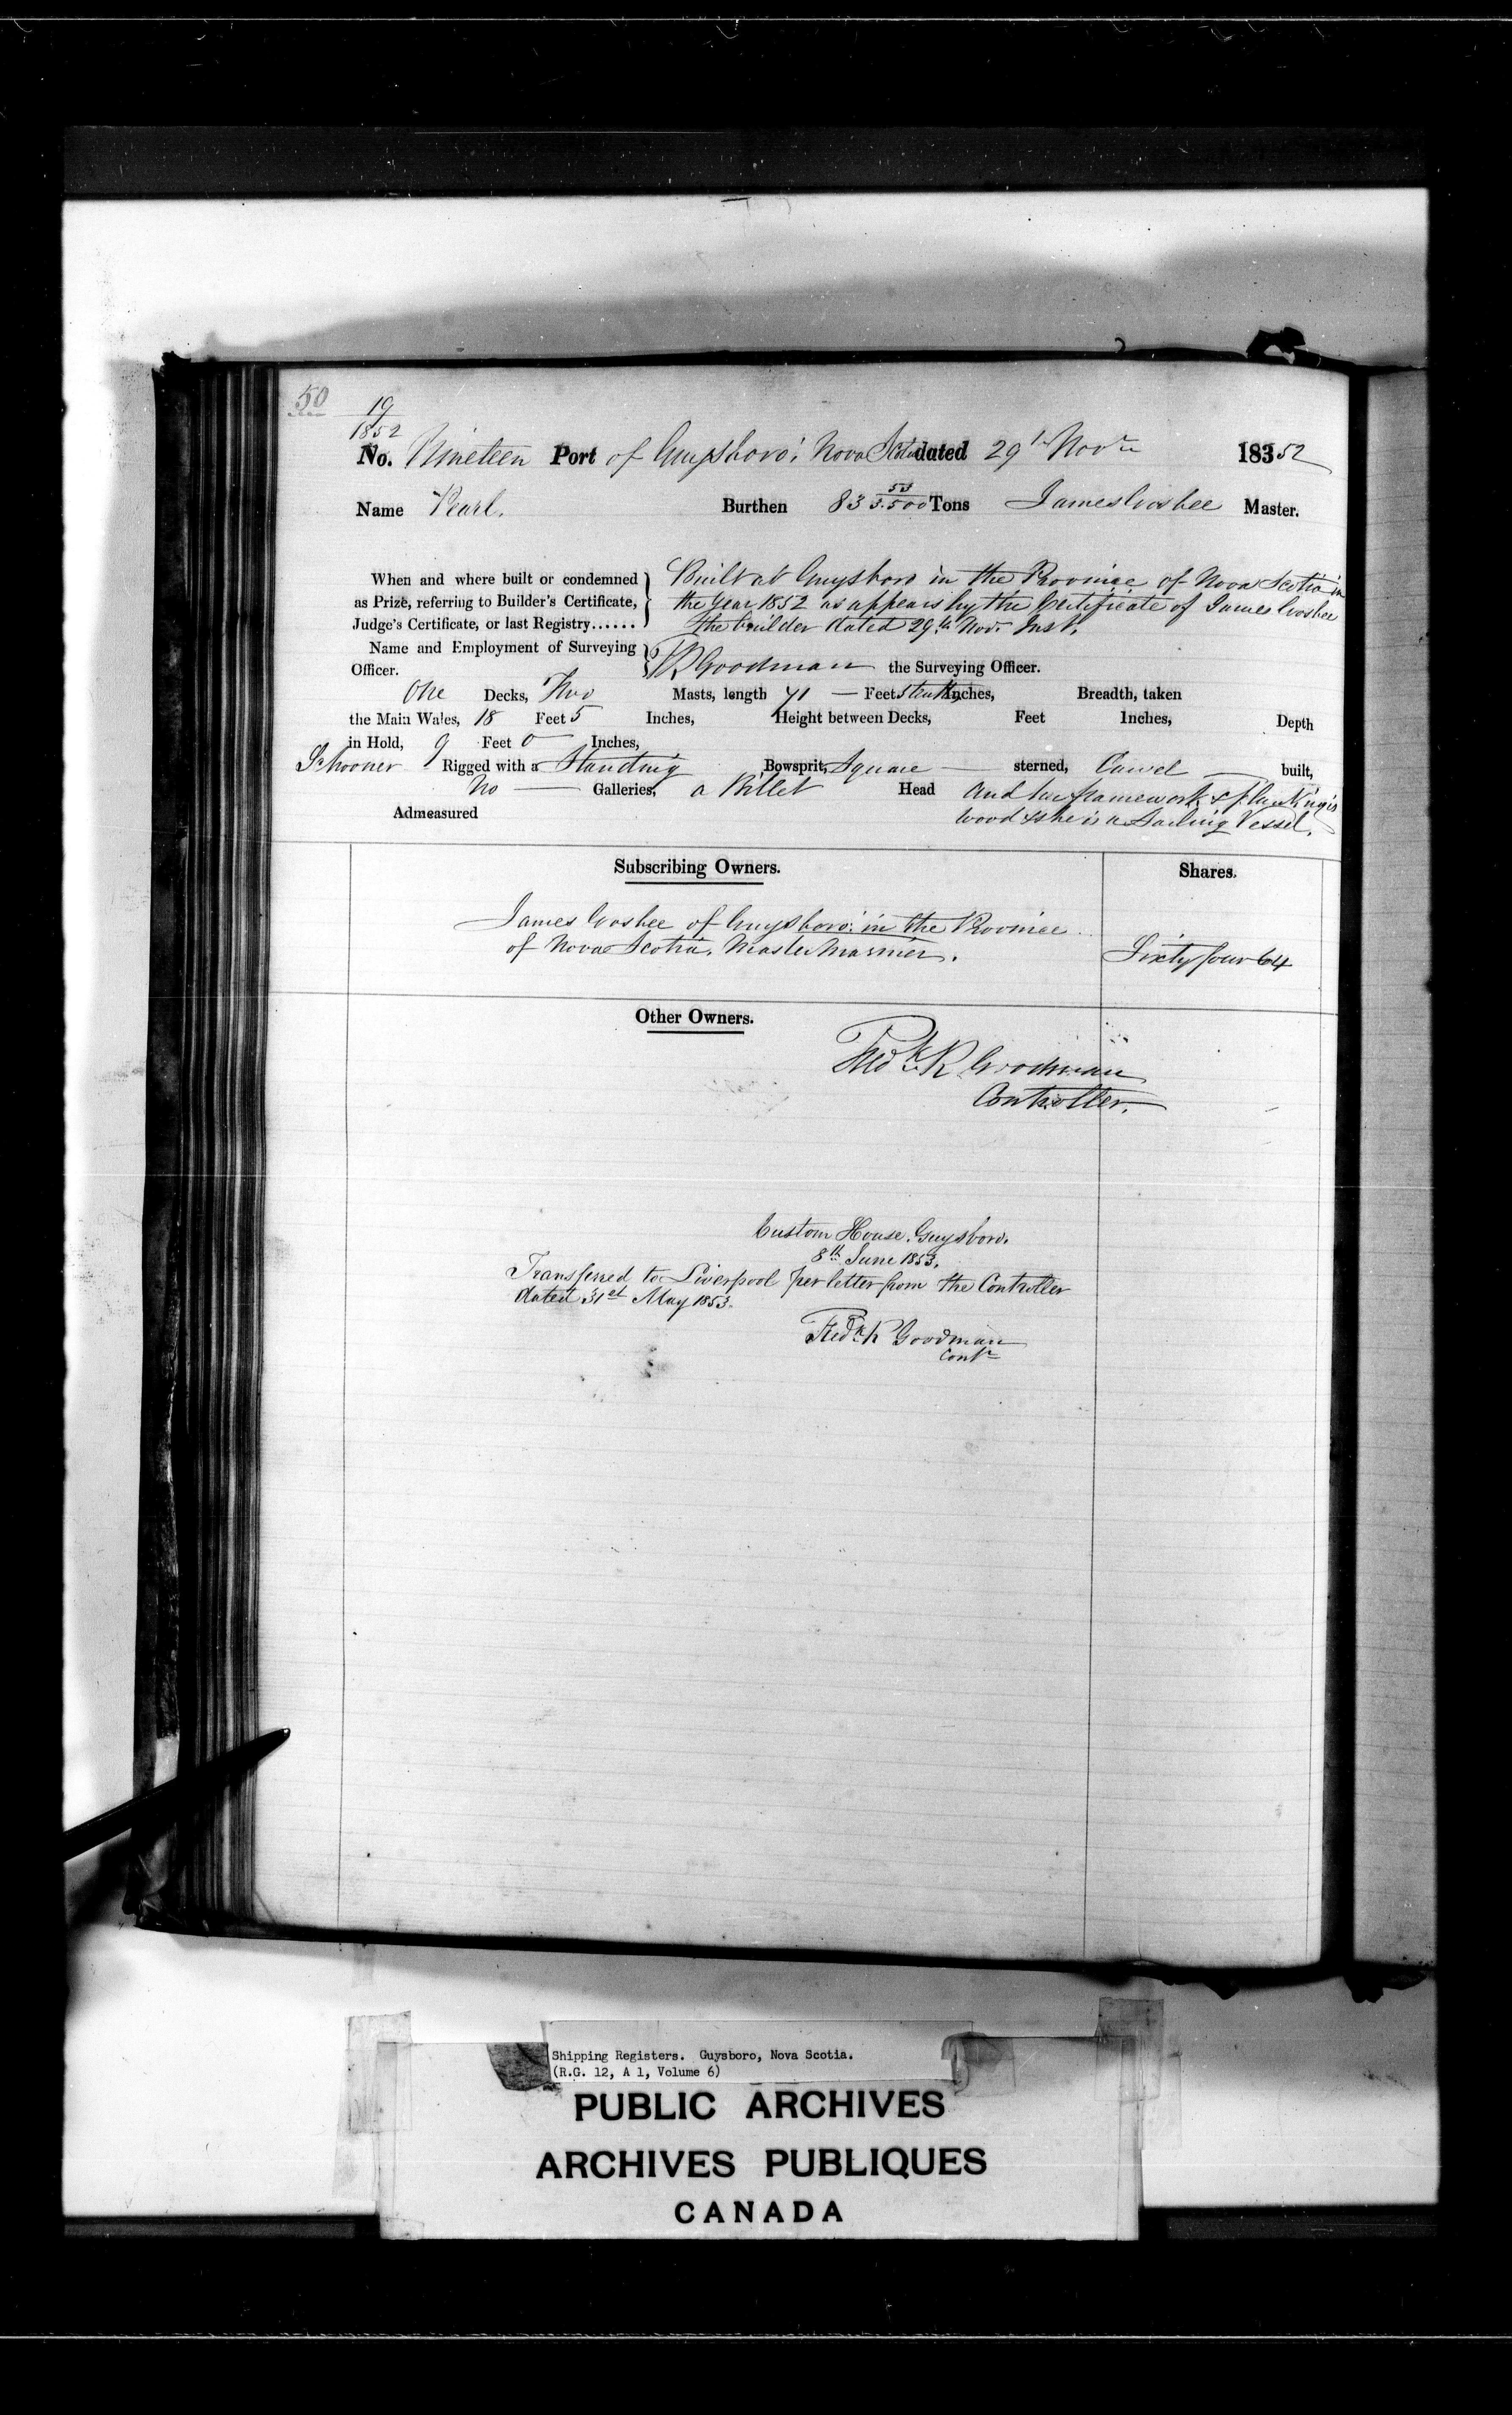 50
19
1852
No. Nineteen Port of Guysboro' Nova Scotia dated 29th Novr 18352
Name Pearl. Burthen 83 53/3.500 Tons James Cosbee Master.
When and where built or condemned
as Prize, referring to Builder's Certificate,
Judge's Certificate, or last Registry......
Built at Guysboro in the Province of Nova Scotia in
the Year 1852 as appears by the Certificate of James Cosbee
the builder dated 29th Novr Inst.
Name and Employment of Surveying
Officer.
Goodman the Surveying Officer.
One Decks, Two Masts, length 71 — Feet 5 tenths Inches, Breadth, taken
the Main Wales, 18 Feet 5 Inches, Height between Decks, Feet Inches, Depth
in Hold, 9 Feet 0 Inches,
Schooner Rigged with a Standing Bowsprit, Square — sterned, Carvel — built,
No — Galleries, a Billet Head and her framework & planking is
Admeasured wood & she is a Sailing Vessel.
Subscribing Owners. Shares.
James Cosbee of Guysboro' in the Province
of Nova Scotia. Master Mariner. Sixty four 64
Other Owners.
Fredk R Goodman
Controller.
Custom House, Guysboro.
8th June 1853.
Transferred to Liverpool per letter from the Controller
dated 31st May 1853.
Fredk R Goodman
Contr
Shipping Registers. Guysboro, Nova Scotia.
(R.G. 12, A 1, Volume 6)
PUBLIC ARCHIVES
ARCHIVES PUBLIQUES
CANADA